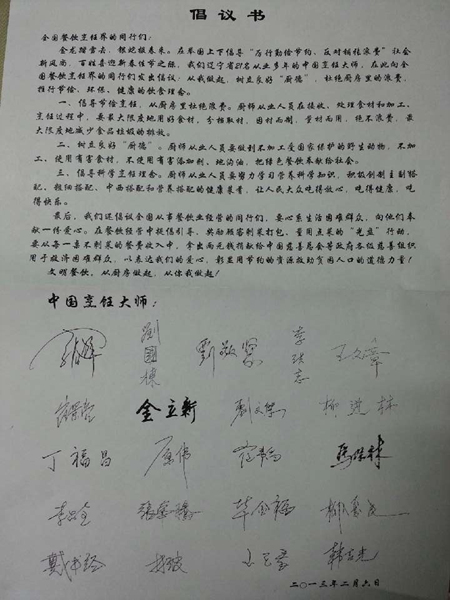 倡议书
全国餐饮烹饪界的同行们：
金龙踏雪去，银蛇报春来。在举国上下倡导“厉行勤俭节约，反对铺张浪费”社会
新风尚，百姓喜迎新春佳节之际，我们辽宁省21名从业多年的中国烹饪大师，在此向全
国餐饮烹饪界的同行们发出倡议：从我做起，树立良好“厨德”，杜绝厨房里的浪费，
推行节俭、环保、健康的饮食理念。
一、倡导节俭烹饪，从厨房里杜绝浪费。厨师从业人员在验收、处理食材和加工、
烹饪过程中，要最大限度地用好食材，分档取材，因材而制，量材而用，绝不浪费，最
大限度地减少食品垃圾的排放。
二、树立良好“厨德”。厨师从业人员要做到不加工受国家保护的野生动物，不加
工、使用有害食材，不使用有害添加剂、地沟油，把绿色餐饮奉献给社会。
三、倡导科学烹饪理念。厨师从业人员要努力学习营养科学知识，积极创制主副搭
配、粗细搭配、中西搭配和营养搭配的健康菜肴，让人民大众吃得放心，吃得健康，吃
得快乐。
最后，我们还倡议全国从事餐饮业经营的同行们，要心系生活困难群众，向他们奉
献一份爱心。在餐饮经营中提倡引导、奖励顾客剩菜打包、量用点菜的“光盘”行动，
要从每一桌不剩菜的餐费收入中，拿出两元钱捐献给中国慈善总会等政府各级慈善组织
用于救济困难群众，以表达我们的爱心，彰显用节约的资源救助贫困人口的道德力量！
文明餐饮，从厨房做起，从你我做起！
中国烹饪大师：
劉國棟 劉敬賢 李洪志 王文章
金立新 劉文
丁福昌
張
李 戴书经
二〇一三年二月六日